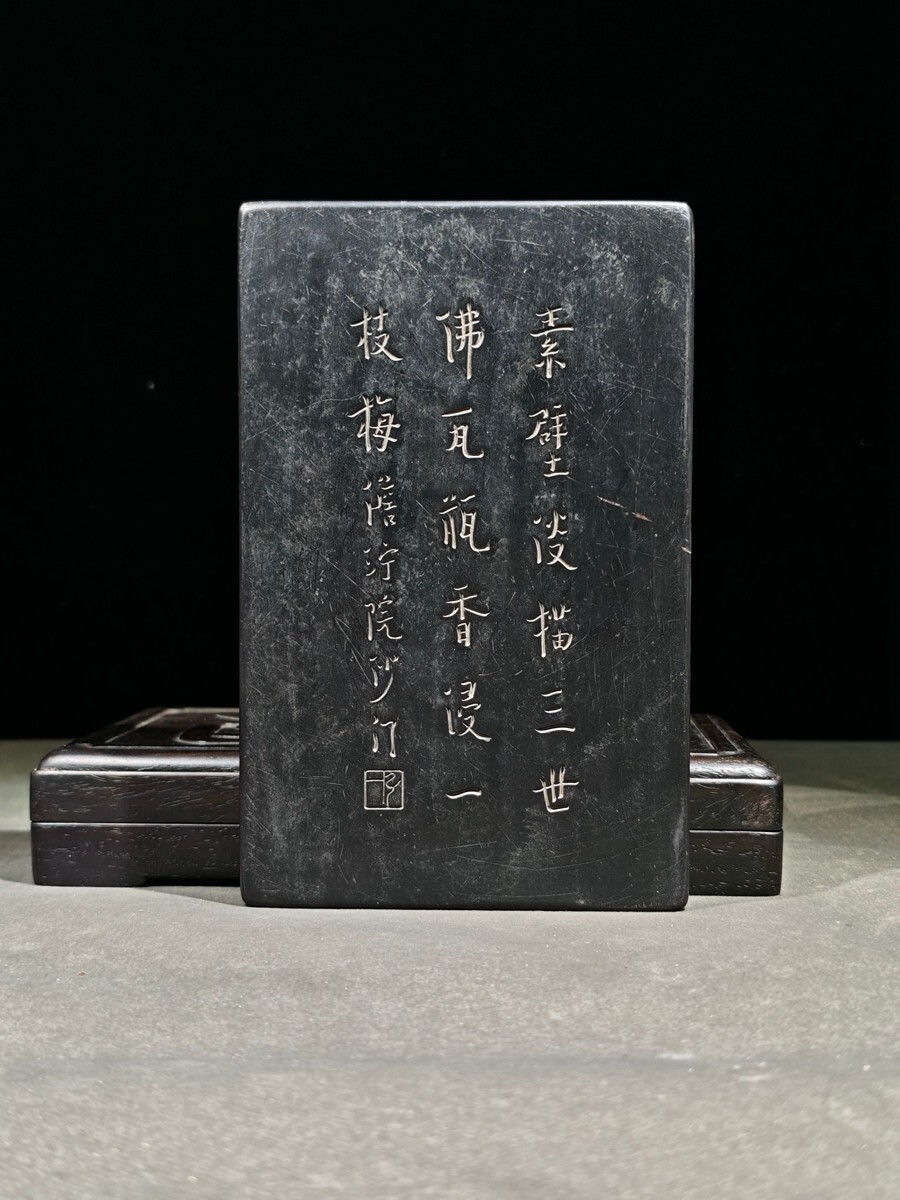 素壁淡描三世
佛瓦瓶香浸一
枝梅澹泞院沙门